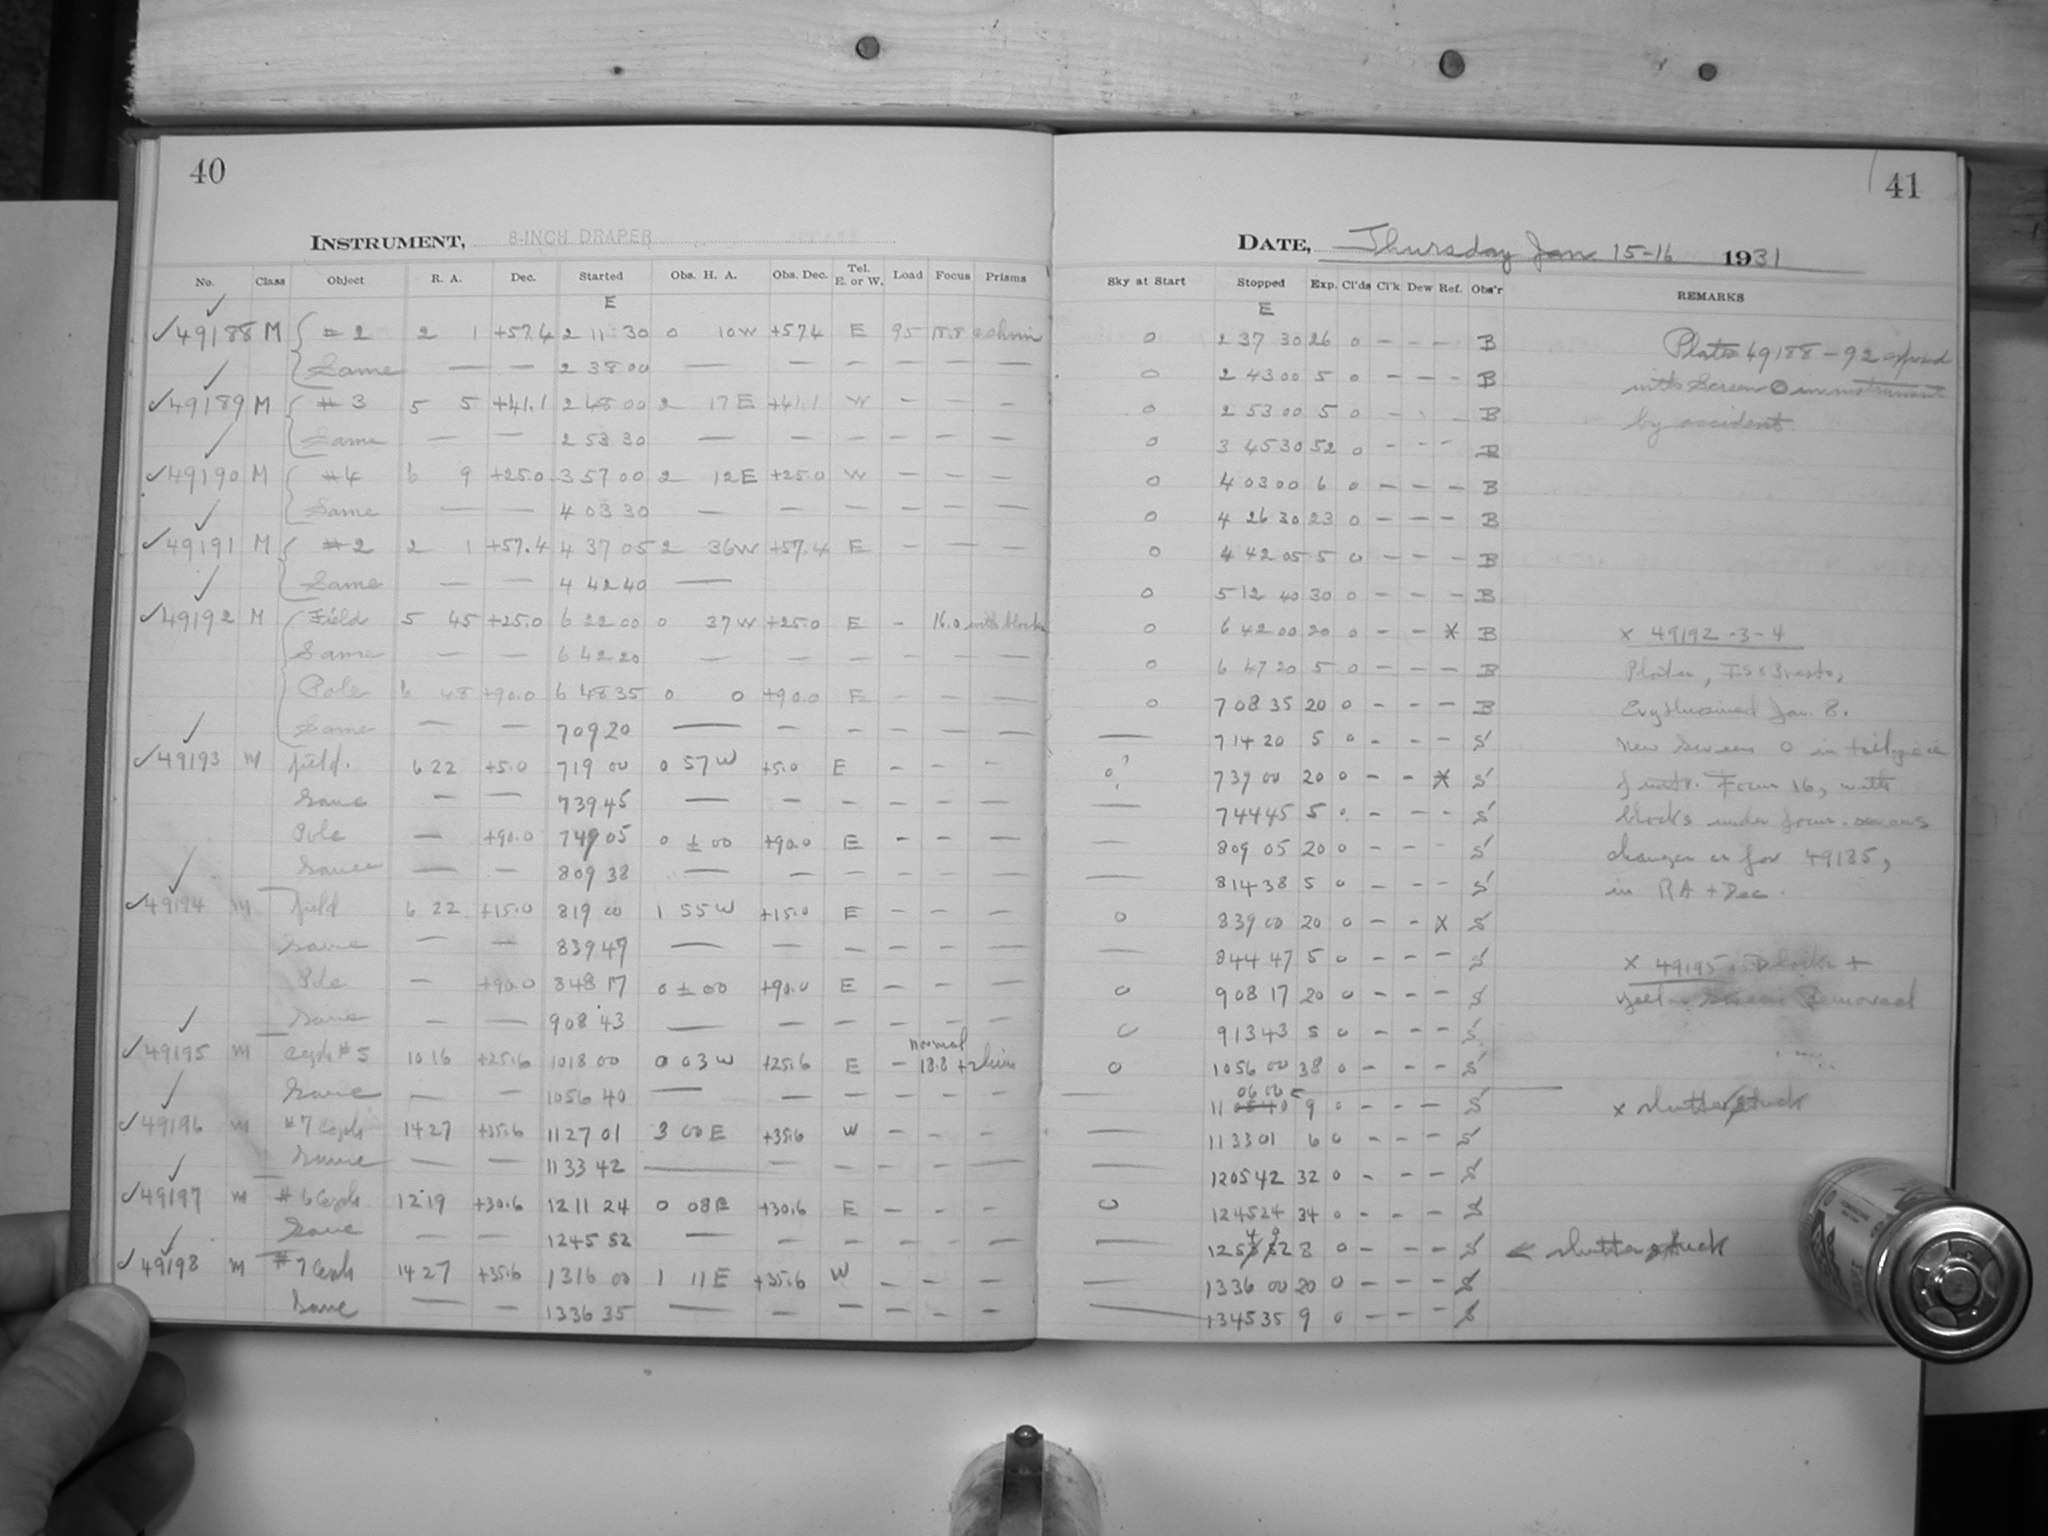 40
INSTRUMENT, 8-INCH DRAPER
No. Class Object R. A. Dec. Started Obs. H. A. Obs. Dec. Tel. E. or W. Load Focus Prisms
E
✓49188 M # 2 2 1 +57.4 2 11 30 0 10W +57.4 E 95 18.8
Same — — 2 38 00 — — — — — —
✓49189 M # 3 5 5 +41.1 2 48 00 2 17E +41.1 W — — —
Same — — 2 53 30 — — — — — —
✓49190 M #4 6 9 +25.0 3 57 00 2 12E +25.0 W — — —
Same — — 4 03 30 — — — — — —
✓49191 M #2 2 1 +57.4 4 37 05 2 36W +57.4 E — — —
Same — — 4 42 40 —
✓49192 M Field 5 45 +25.0 6 22 00 0 37W +25.0 E - 16.0 with blocks
Same — — 6 42 20 — — — — — —
Pole 6 48 +90.0 6 48 35 0 0 +90.0 E — — —
Same — — 7 09 20 — — — — — —
✓49193 M field. 6 22 +5.0 7 19 00 0 57W +5.0 E — — —
Same — — 7 39 45 — — — — — —
Pole — +90.0 7 49 05 0 ± 00 +90.0 E — — —
Same — — 8 09 38 — — — — — —
✓49194 M field 6 22 +15.0 8 19 00 1 55W +15.0 E — — —
Same — — 8 39 47 — — — — — —
Pole — +90.0 8 48 17 0 ± 00 +90.0 E — — —
Same — — 9 08 43 — — — — — —
normal
✓49195 M Ceph #5 10 16 +25.6 10 18 00 0 03W +25.6 E — 18.8
Same — — 10 56 40 — — — — — —
✓49196 M #7 Ceph 14 27 +35.6 11 27 01 3 00E +35.6 W — — —
Same — — 11 33 42 — — — — — —
✓49197 M #6 Ceph. 12 19 +30.6 12 11 24 0 08E +30.6 E — — —
Same — — 12 45 52 — — — — — —
✓49198 M #7 Ceph 14 27 +35.6 13 16 00 1 11E +35.6 W — — —
Same — — 13 36 35 — — — — — —
41
DATE, Thursday Jan 15-16 1931
Sky at Start Stopped Exp. Cl'ds Cl'k Dew Ref. Obs'r REMARKS
E
0 2 37 30 26 0 - - - B
Plates 49188-92 exposed
0 2 43 00 5 0 - - - B
with Screen O in instrument
0 2 53 00 5 0 - - - B
by accident
0 3 45 30 52 0 - - - B
0 4 03 00 6 0 - - - B
0 4 26 30 23 0 - - - B
0 4 42 05 5 0 - - - B
0 5 12 40 30 0 - - - B
0 6 42 00 20 0 - - X B x 49192-3-4
0 6 47 20 5 0 - - - B Plates,
0 7 08 35 20 0 - - - B Erythrosined Jan. 8.
— 7 14 20 5 0 - - - S New Screen O in
0? 7 39 00 20 0 - - X S Focus 16, with
— 7 44 45 5 0 - - - S blocks under focus.
— 8 09 05 20 0 - - - S changes as for 49185,
— 8 14 38 5 0 - - - S in RA + Dec.
0 8 39 00 20 0 - - X S
— 8 44 47 5 0 - - - S x 49195 Blocks +
0 9 08 17 20 0 - - - S Yellow Screen Removed
0 9 13 43 5 0 - - - S
0 10 56 00 38 0 - - - S
— 11 06 00 9 0 - - - S x shutter stuck
— 11 33 01 6 0 - - - S
— 12 05 42 32 0 - - - S
0 12 45 24 34 0 - - - S
— 8 0 - - - S < shutter stuck
— 13 36 00 20 0 - - - S
— 13 45 35 9 0 - - - S